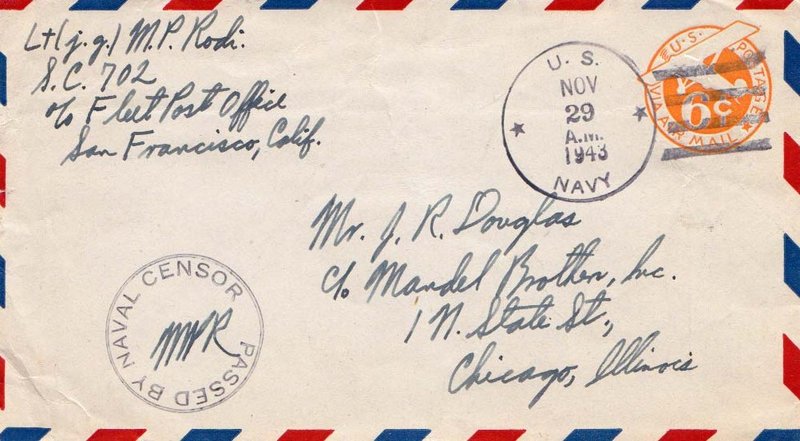 Lt(j.g.) M.P. Rodi.
S.C. 702
c/o Fleet Post Office
San Francisco, Calif.
U. S.
NOV
29
A.M.
1943
NAVY
U.S. POSTAGE
6c
VIA AIR MAIL
Mr. J. R. Douglas
c/o Mandel Brothers, Inc.
1 N. State St.,
Chicago, Illinois
PASSED BY NAVAL CENSOR
MPR